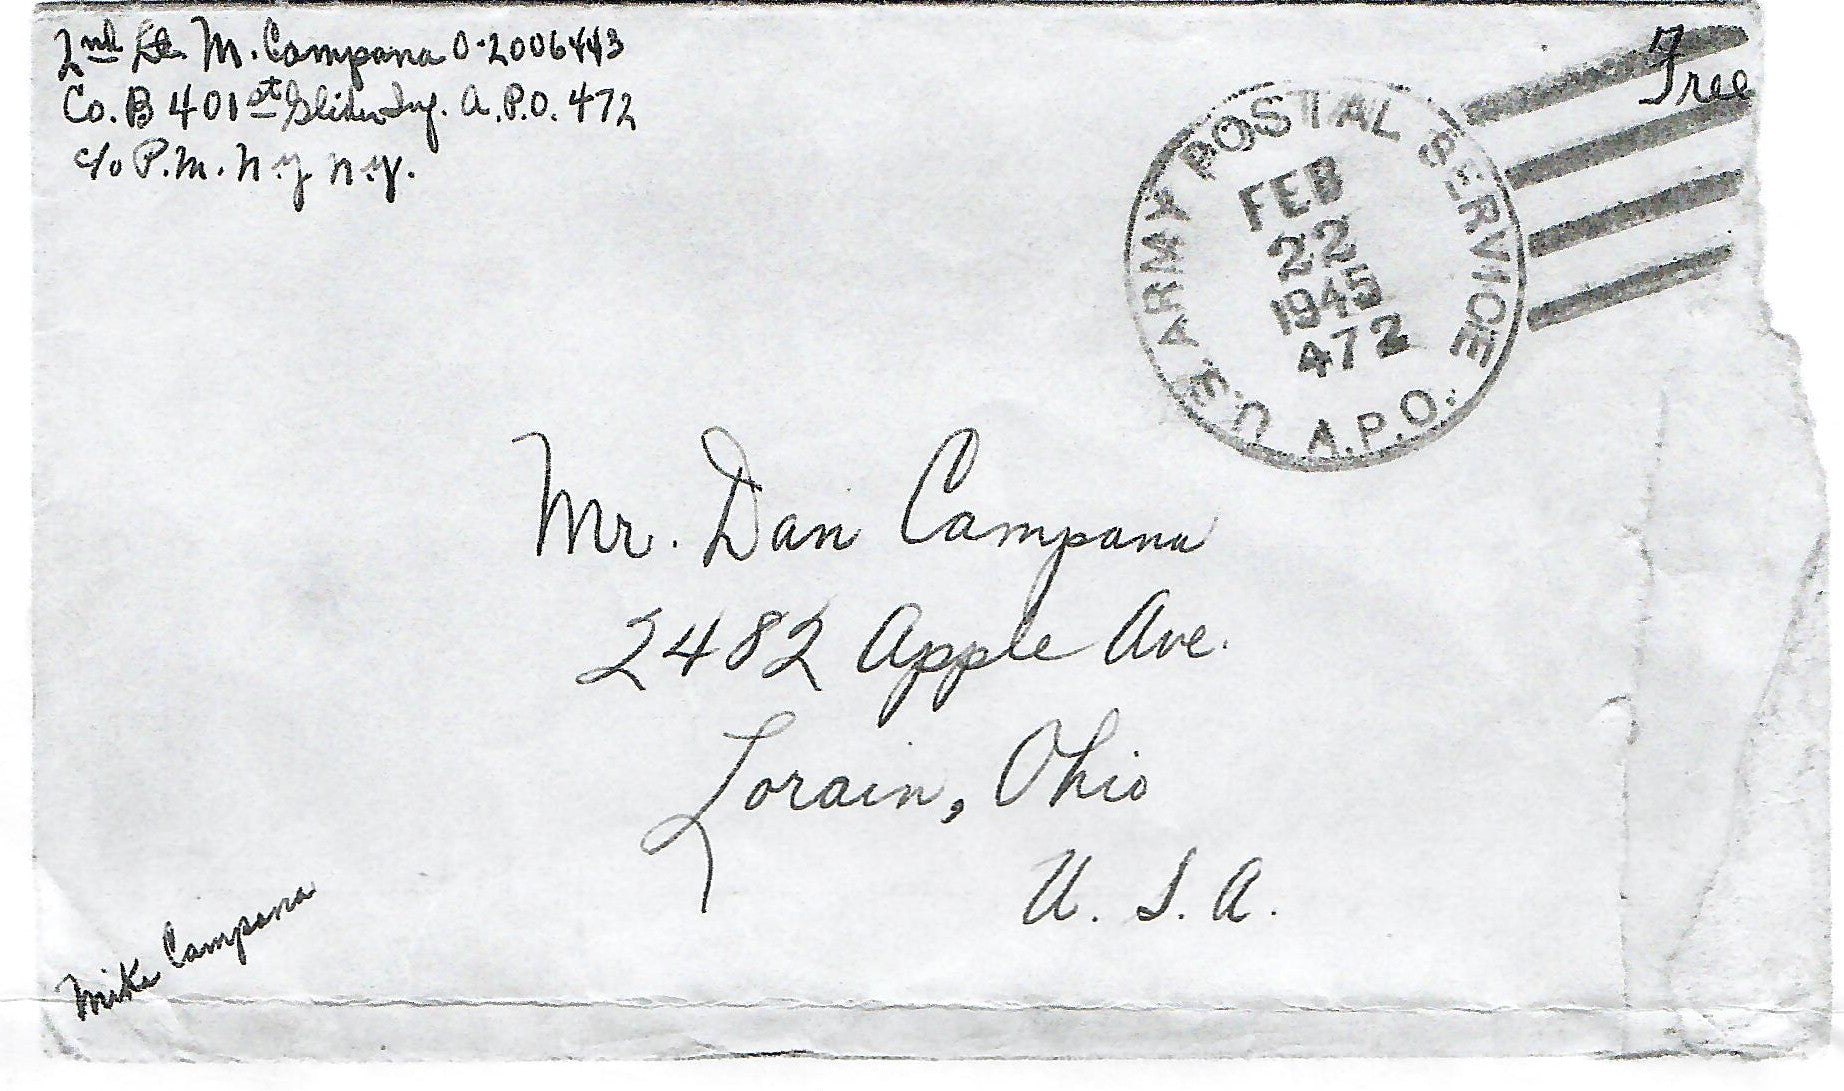 2nd Lt. M. Campana O-2006443
Co. B 401st Glider Inf. A.P.O. 472
c/o P.M. N.Y. N.Y.
Free
U.S. ARMY POSTAL SERVICE
FEB
22
1945
472
A.P.O.
Mr. Dan Campana
2482 Apple Ave.
Lorain, Ohio
U. S. A.
Mike Campana